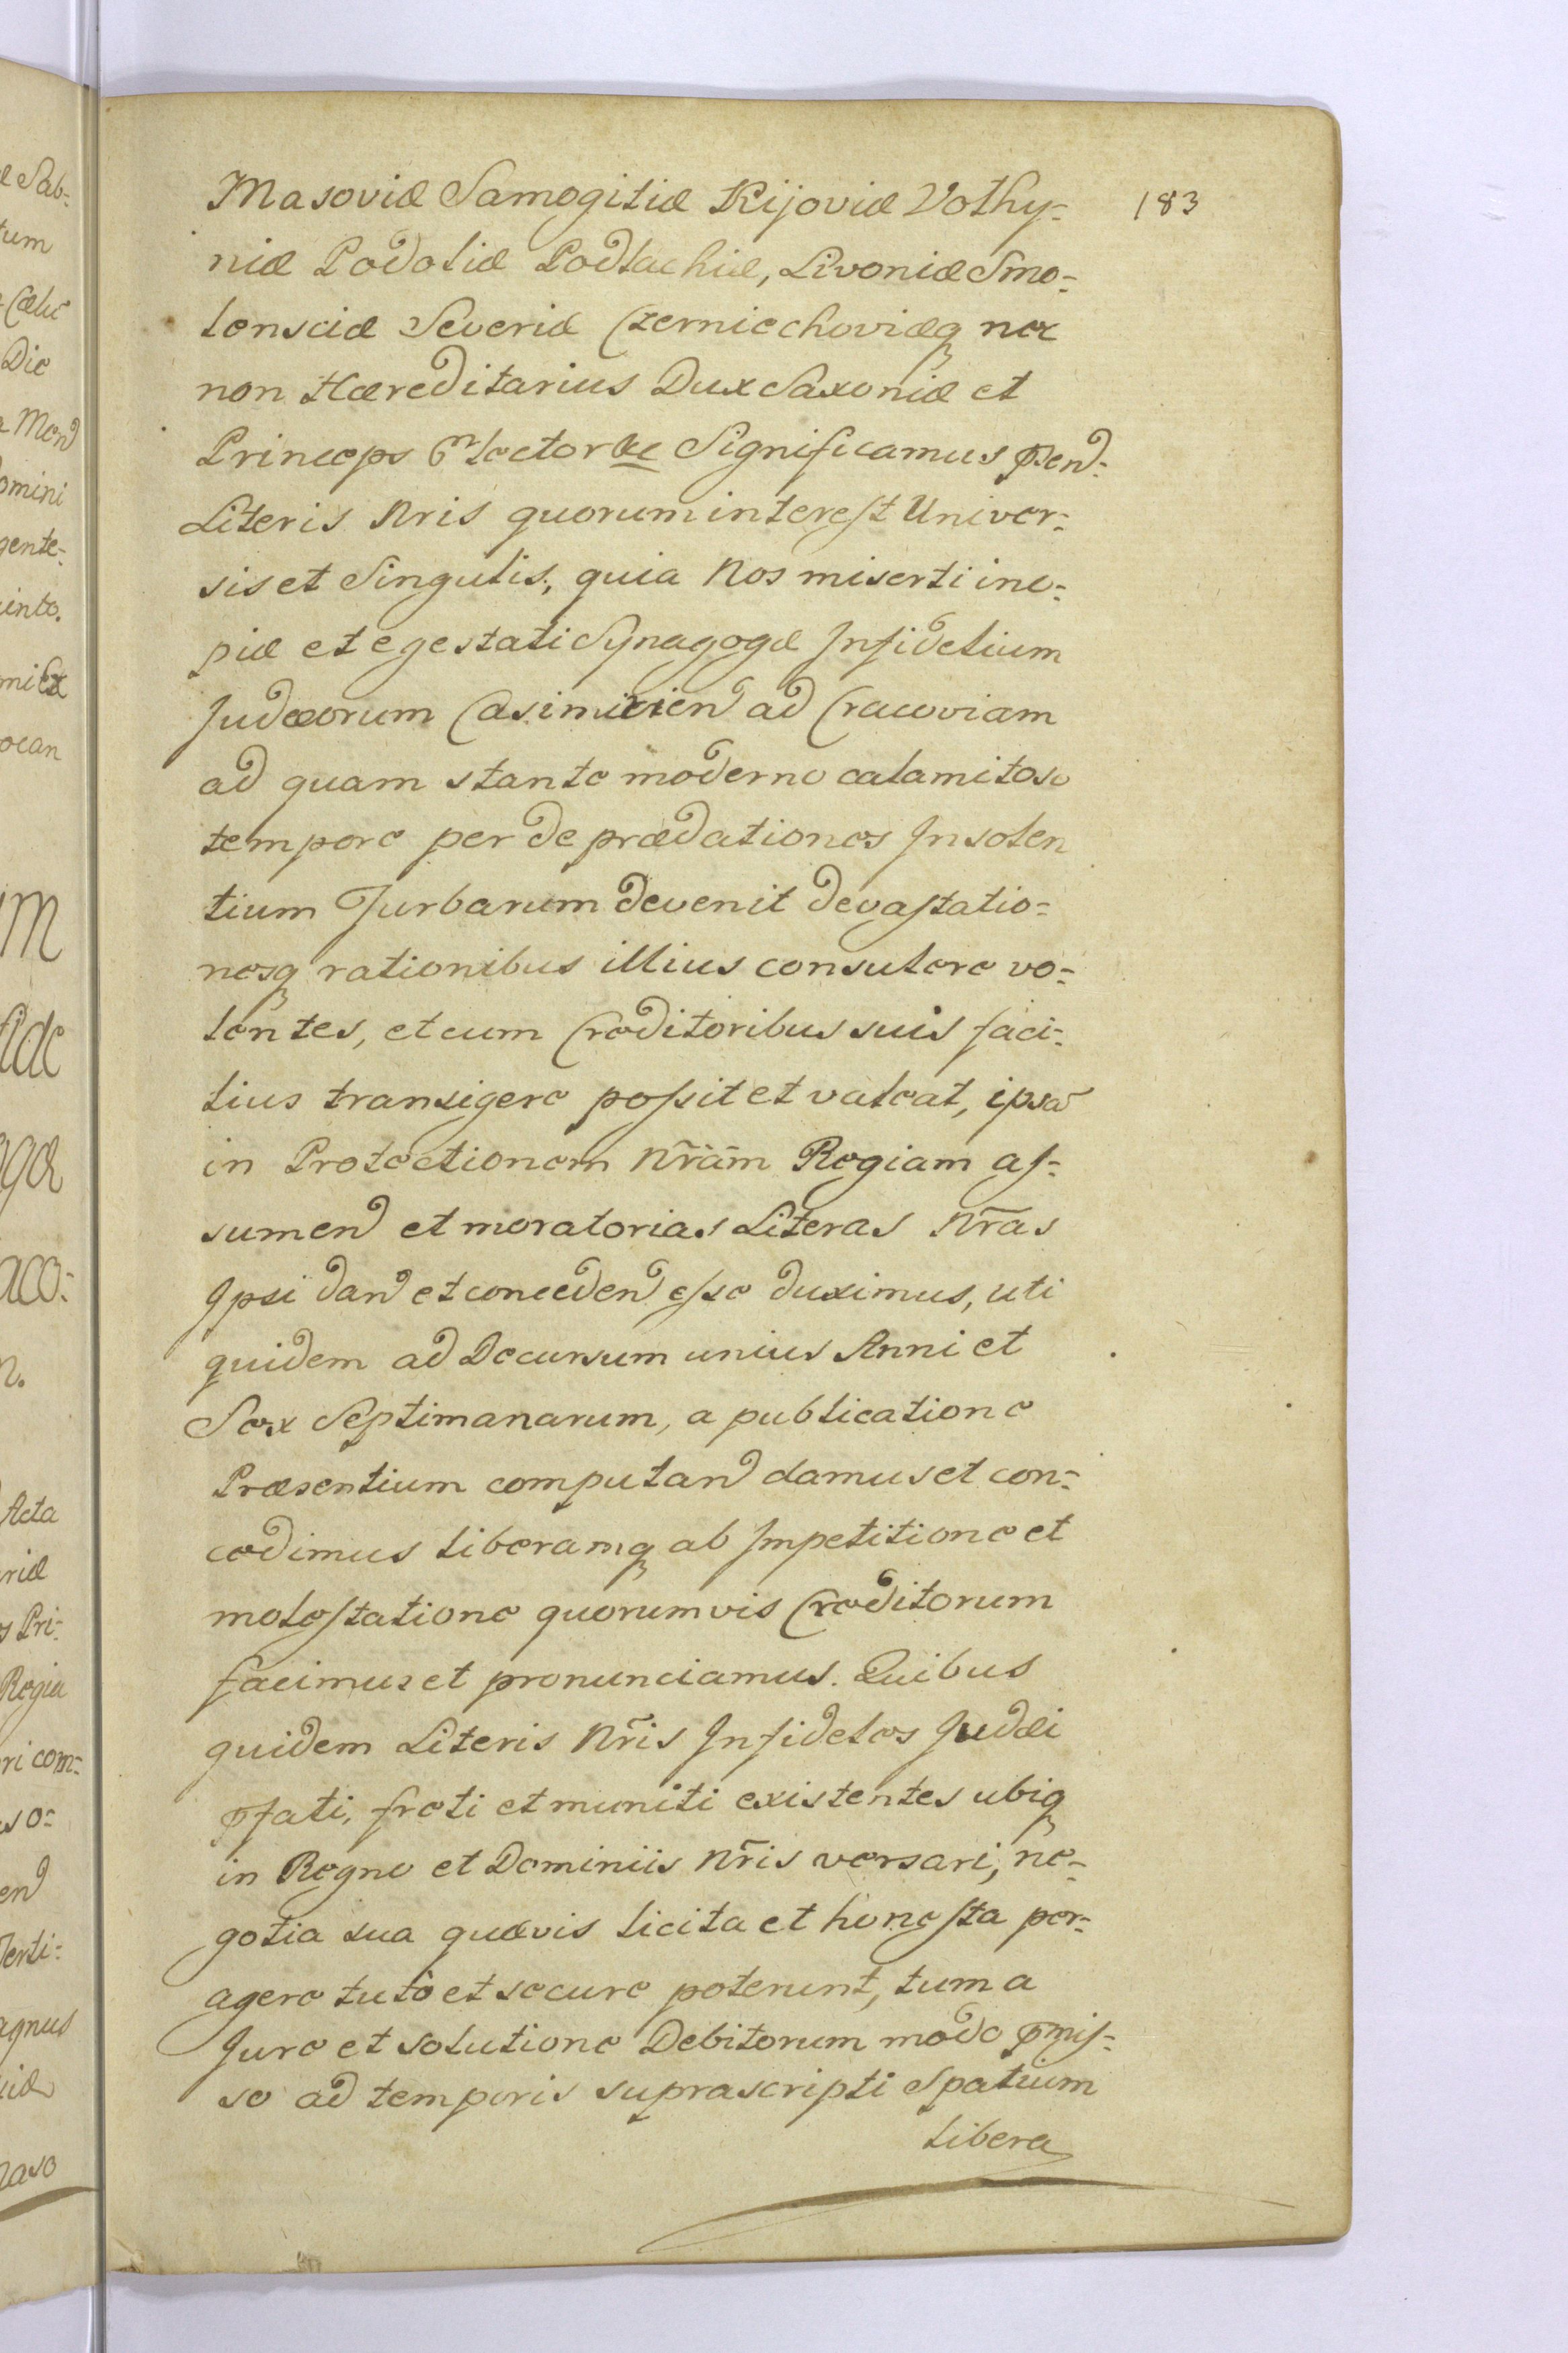 183
Masoviæ Samogitiæ Kijoviæ Volhy-
niæ Podoliæ Podlachiæ, Livoniæ Smo-
lensciæ Severiæ Czerniechoviæq nec
non Hæreditarius Dux Saxoniæ et
Princeps Elector &c Significamus pñen:
Literis Nris quorum interest Univer-
sis et Singulis, quia Nos miserti ino-
piæ et egestati Synagogæ Infidelium
Judæorum Casimirien ad Cracoviam
ad quam stante moderno calamitoso
tempore per deprædationes Insolen
tium Turbarum devenit devastatio-
nesq rationibus illius consulere vo-
lentes, et cum Creditoribus suis faci-
lius transigere possit et valeat, ipsã
in Protectionem Nr̃ãm Regiam as-
sumen et moratorias Literas Nr̃as
Ipsi dan et conceden esse duximus, uti
quidem ad Decursum unius Anni et
Sex Septimanarum, a publicatione
Præsentium computan damus et con-
cedimus liberamq ab Impetitione et
molestatione quorumvis Creditorum
facimus et pronunciamus. Quibus
quidem Literis Nr̃is Infideles Judæi
pfati, freti et muniti existentes ubiq
in Regno et Dominiis Nr̃is versari, ne-
gotia sua quævis licita et honesta per-
agere tutò et secure poterunt, tum a
Jure et solutione Debitorum modo pmis-
so ad temporis suprascripti Spatium
libera